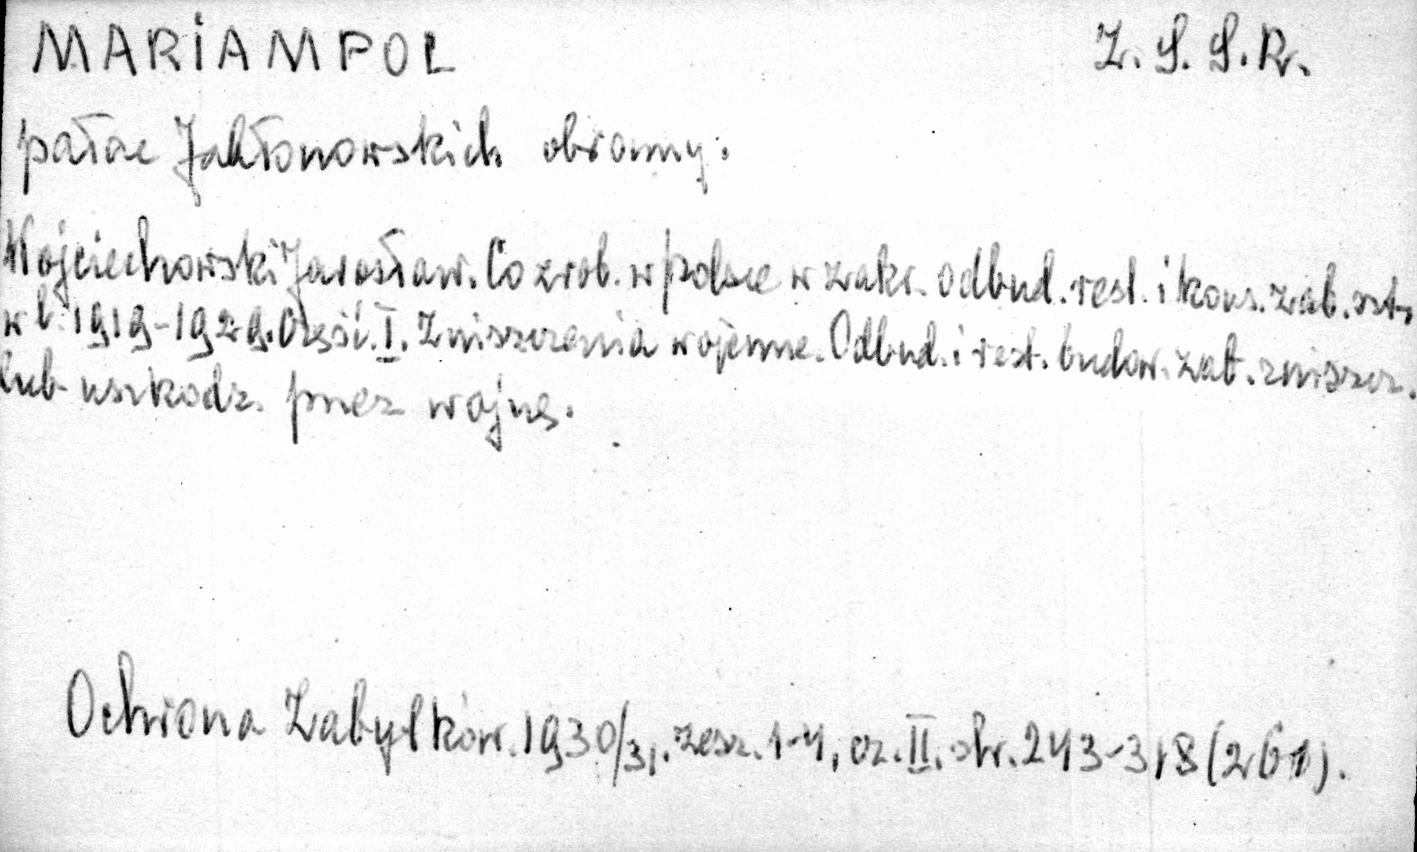 MARIAMPOL Z.S.S.R.
pałac Jabłonowskich obronny.
Wojciechowski Jarosław. Co zrob. w Polsce w zakr. odbud. rest. i kons. zab. szt.
w l. 1919-1929. Część I. Zniszczenia wojenne. Odbud. i rest. budow. zab. zniszcz.
lub uszkodz. przez wojnę.
Ochrona Zabytków. 1930/31. zesz. 1-4, cz. II. str. 243-318 (261).